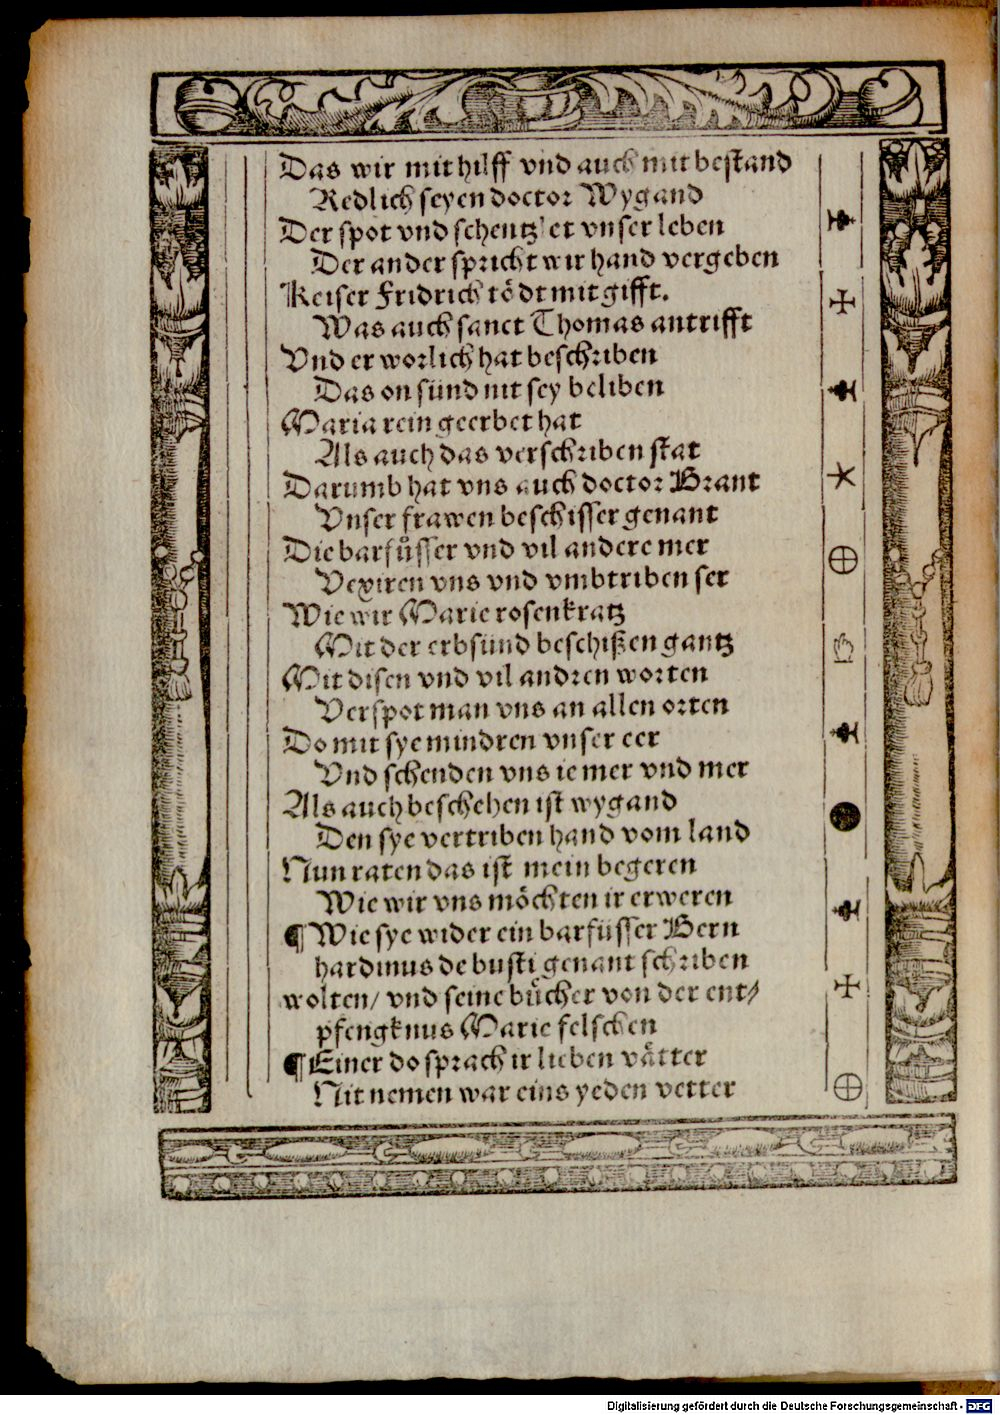 Das wir mit hilff vnd auch mit bestand
Redlich seyen doctor Wygand
Der spot vnd schentzlet vnser leben
Der ander spricht wir hand vergeben
Keiser Fridrich tödt mit gifft.
Was auch sanct Thomas antrifft
Vnd er worlich hat beschriben
Das on sünd nit sey beliben
Maria rein geerbet hat
Als auch das verschriben stat
Darumb hat vns auch doctor Brant
Vnser frawen beschisser genant
Die barfůsser vnd vil andere mer
Vexiren vns vnd vmbtriben ser
Wie wir Marie rosenkratz
Mit der erbsünd beschißen gantz
Mit disen vnd vil andren worten
Verspot man vns an allen orten
Do mit sye mindren vnser eer
Vnd schenden vns ie mer vnd mer
Als auch beschehen ist wygand
Den sye vertriben hand vom land
Nun raten das ist mein begeren
Wie wir vns möchten ir erweren
¶ Wie sye wider ein barfüsser Bern
hardinus de busti genant schriben
wolten/ vnd seine bücher von der ent⸗
pfengknus Marie felschen
¶ Einer do sprach ir lieben vätter
Nit nemen war eins yeden vetter
Digitalisierung gefördert durch die Deutsche Forschungsgemeinschaft - DFG